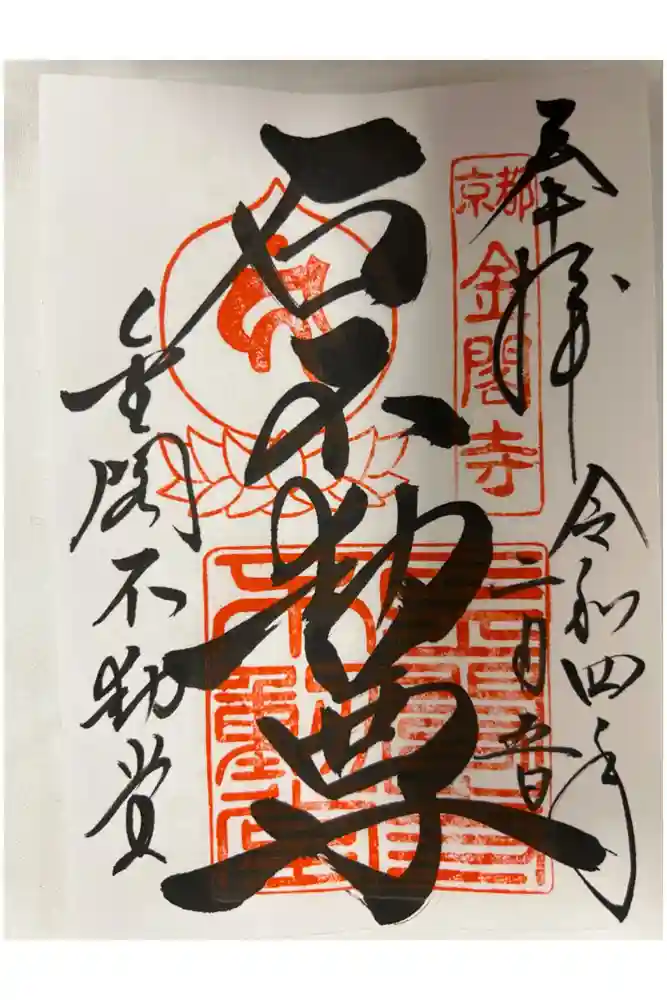 奉拝
令和四年
二月五日
京都
金閣寺
石不動尊
金閣不動堂